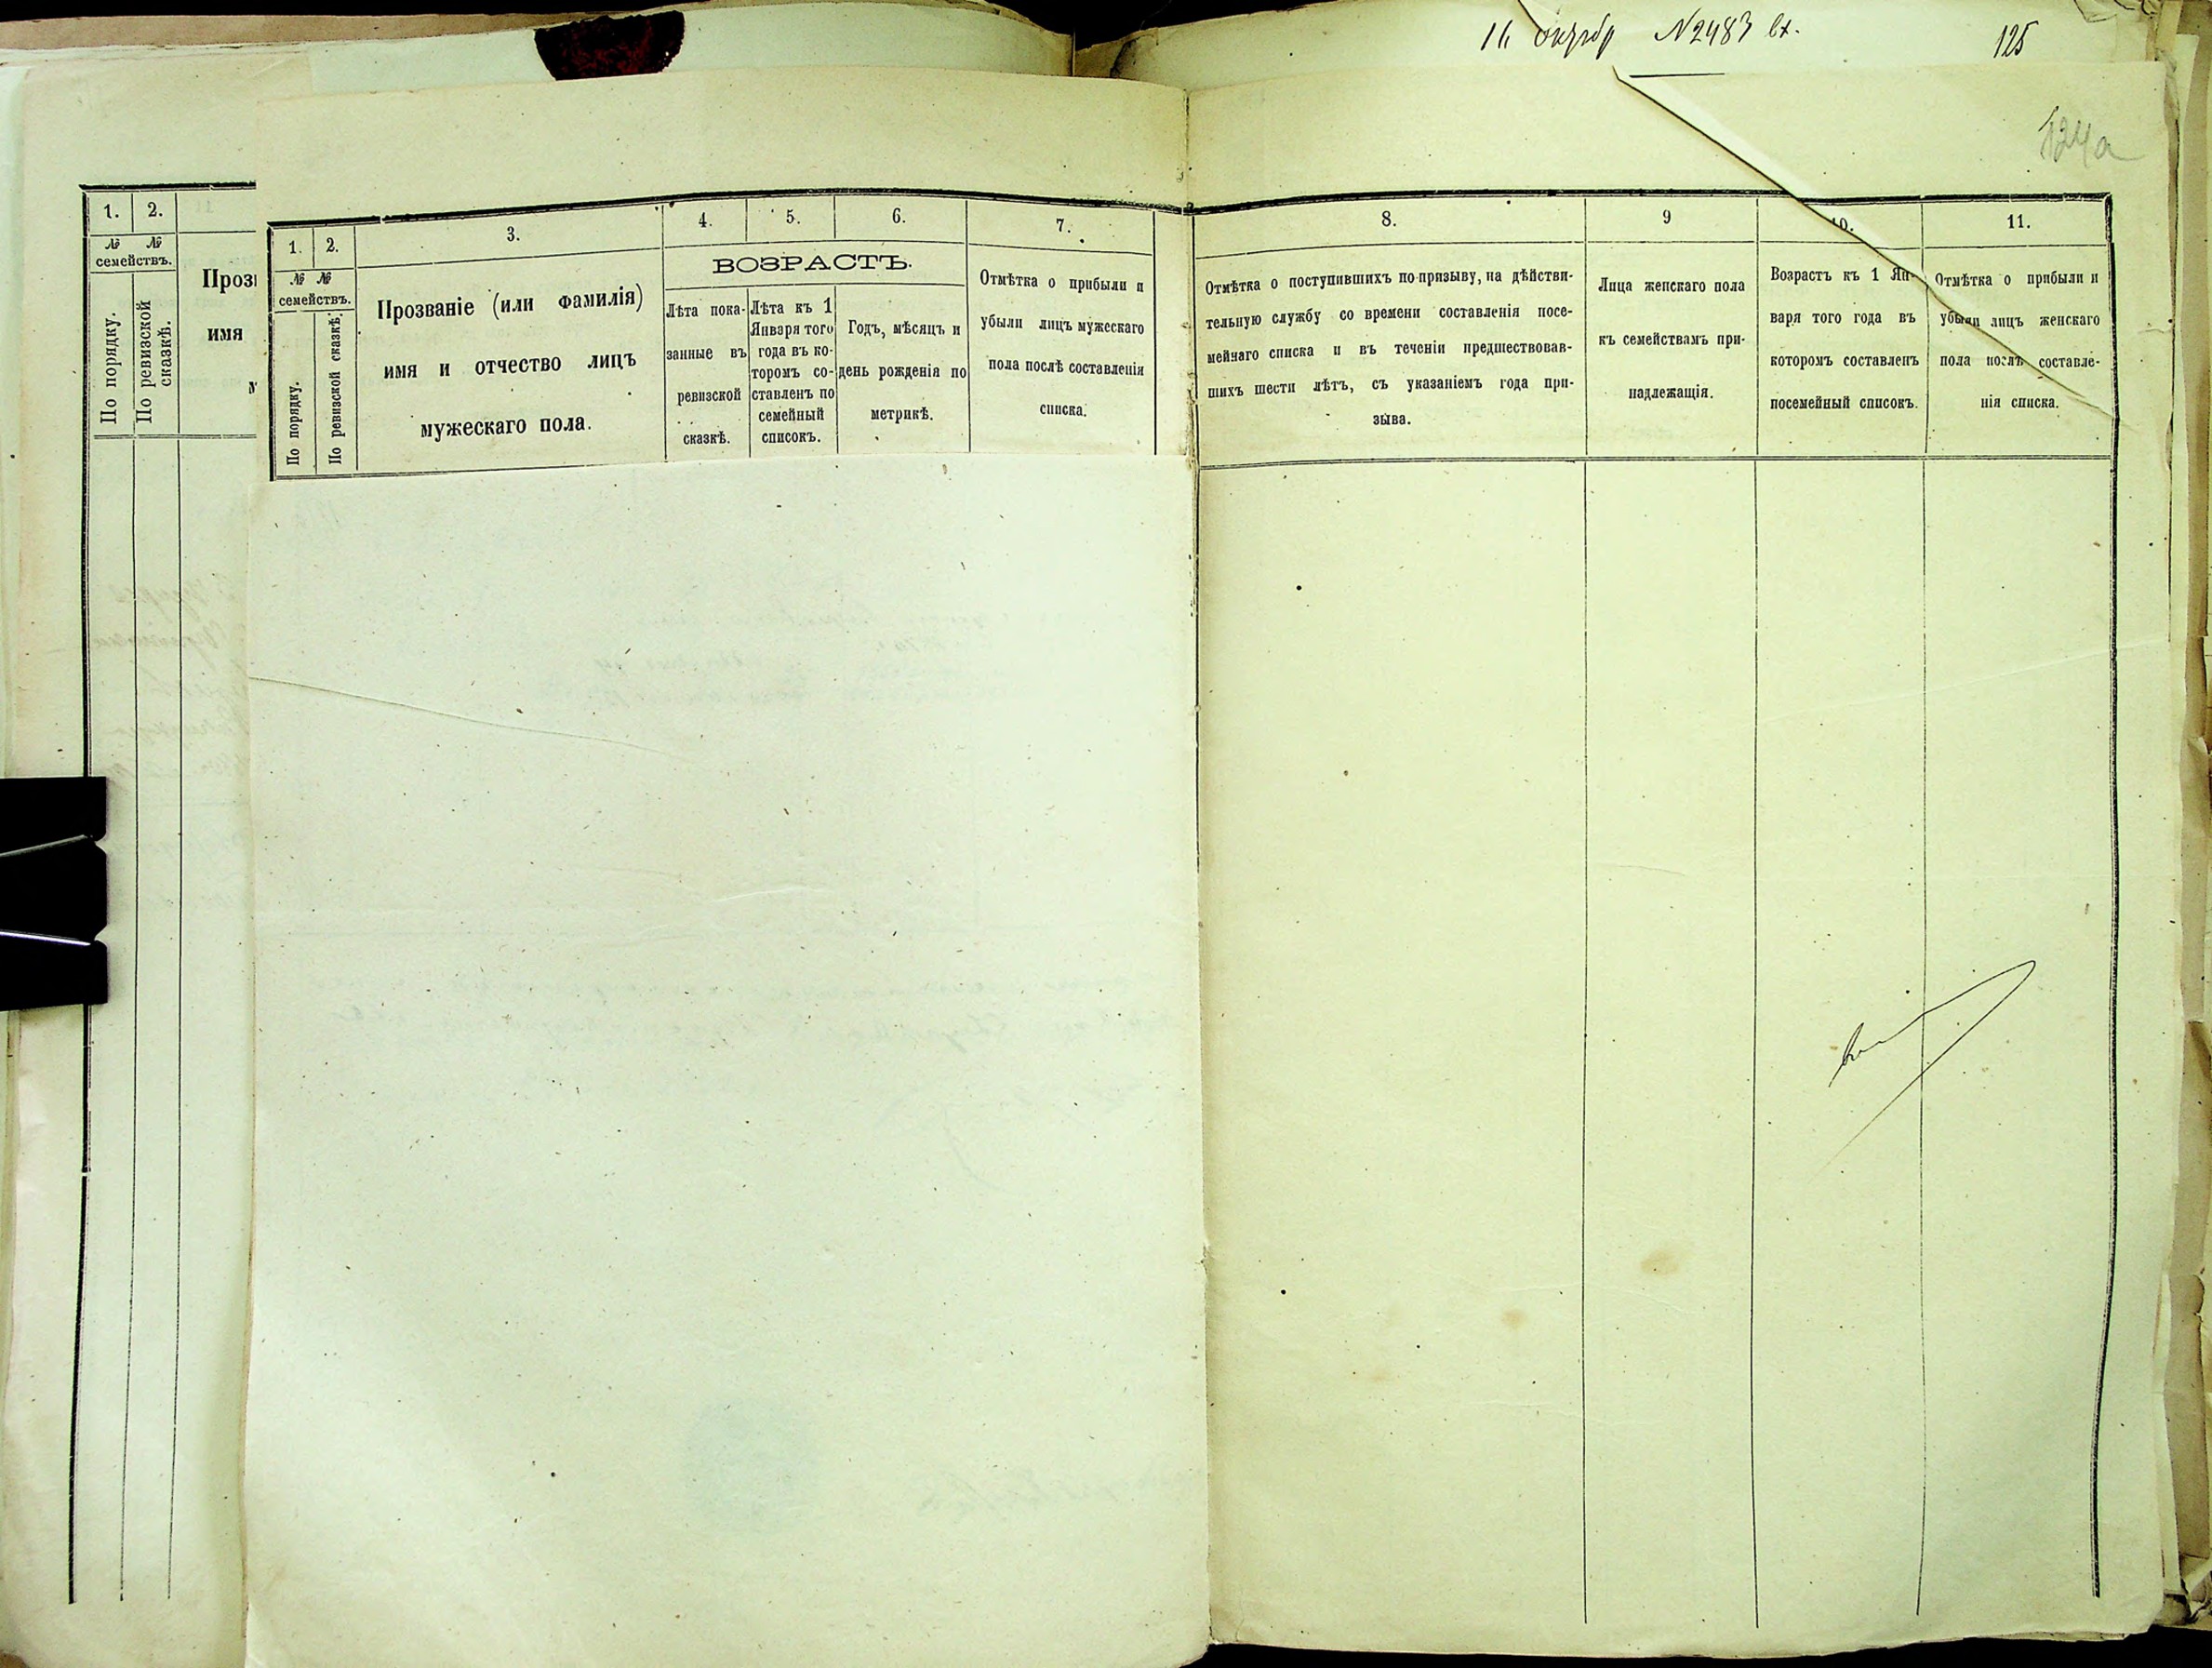 16 октбр N2483 вх.
125
124а
1. 2.
№ №
семействъ.
По порядку.
По ревизской
сказкѣ.
имя
1. 2. 3. 4. 5. 6. 7.
№ №
семействъ.
По порядку.
По ревизской сказкѣ.
Прозваніе (или фамилія)
имя и отчество лицъ
мужескаго пола.
ВОЗРАСТЪ.
Лѣта пока-
занные въ
ревизской
сказкѣ.
Лѣта къ 1
Января того
года въ ко-
торомъ со-
ставленъ по
семейный
список­ъ.
Годъ, мѣсяцъ и
день рожденія по
метрикѣ.
Отмѣтка о прибыли и
убыли лицъ мужескаго
пола послѣ составленія
списка.
8. 9 10. 11.
Отмѣтка о поступившихъ по призыву, на дѣйстви-
тельную службу со времени составленія посе-
мейнаго списка и въ теченіи предшествовав-
шихъ шести лѣтъ, съ указаніемъ года при-
зыва.
Лица женскаго пола
къ семействамъ при-
надлежащія.
Возрастъ къ 1 Ян-
варя того года въ
которомъ составленъ
посемейный списокъ.
Отмѣтка о прибыли и
убыли лицъ женскаго
пола послѣ составле-
нія списка.